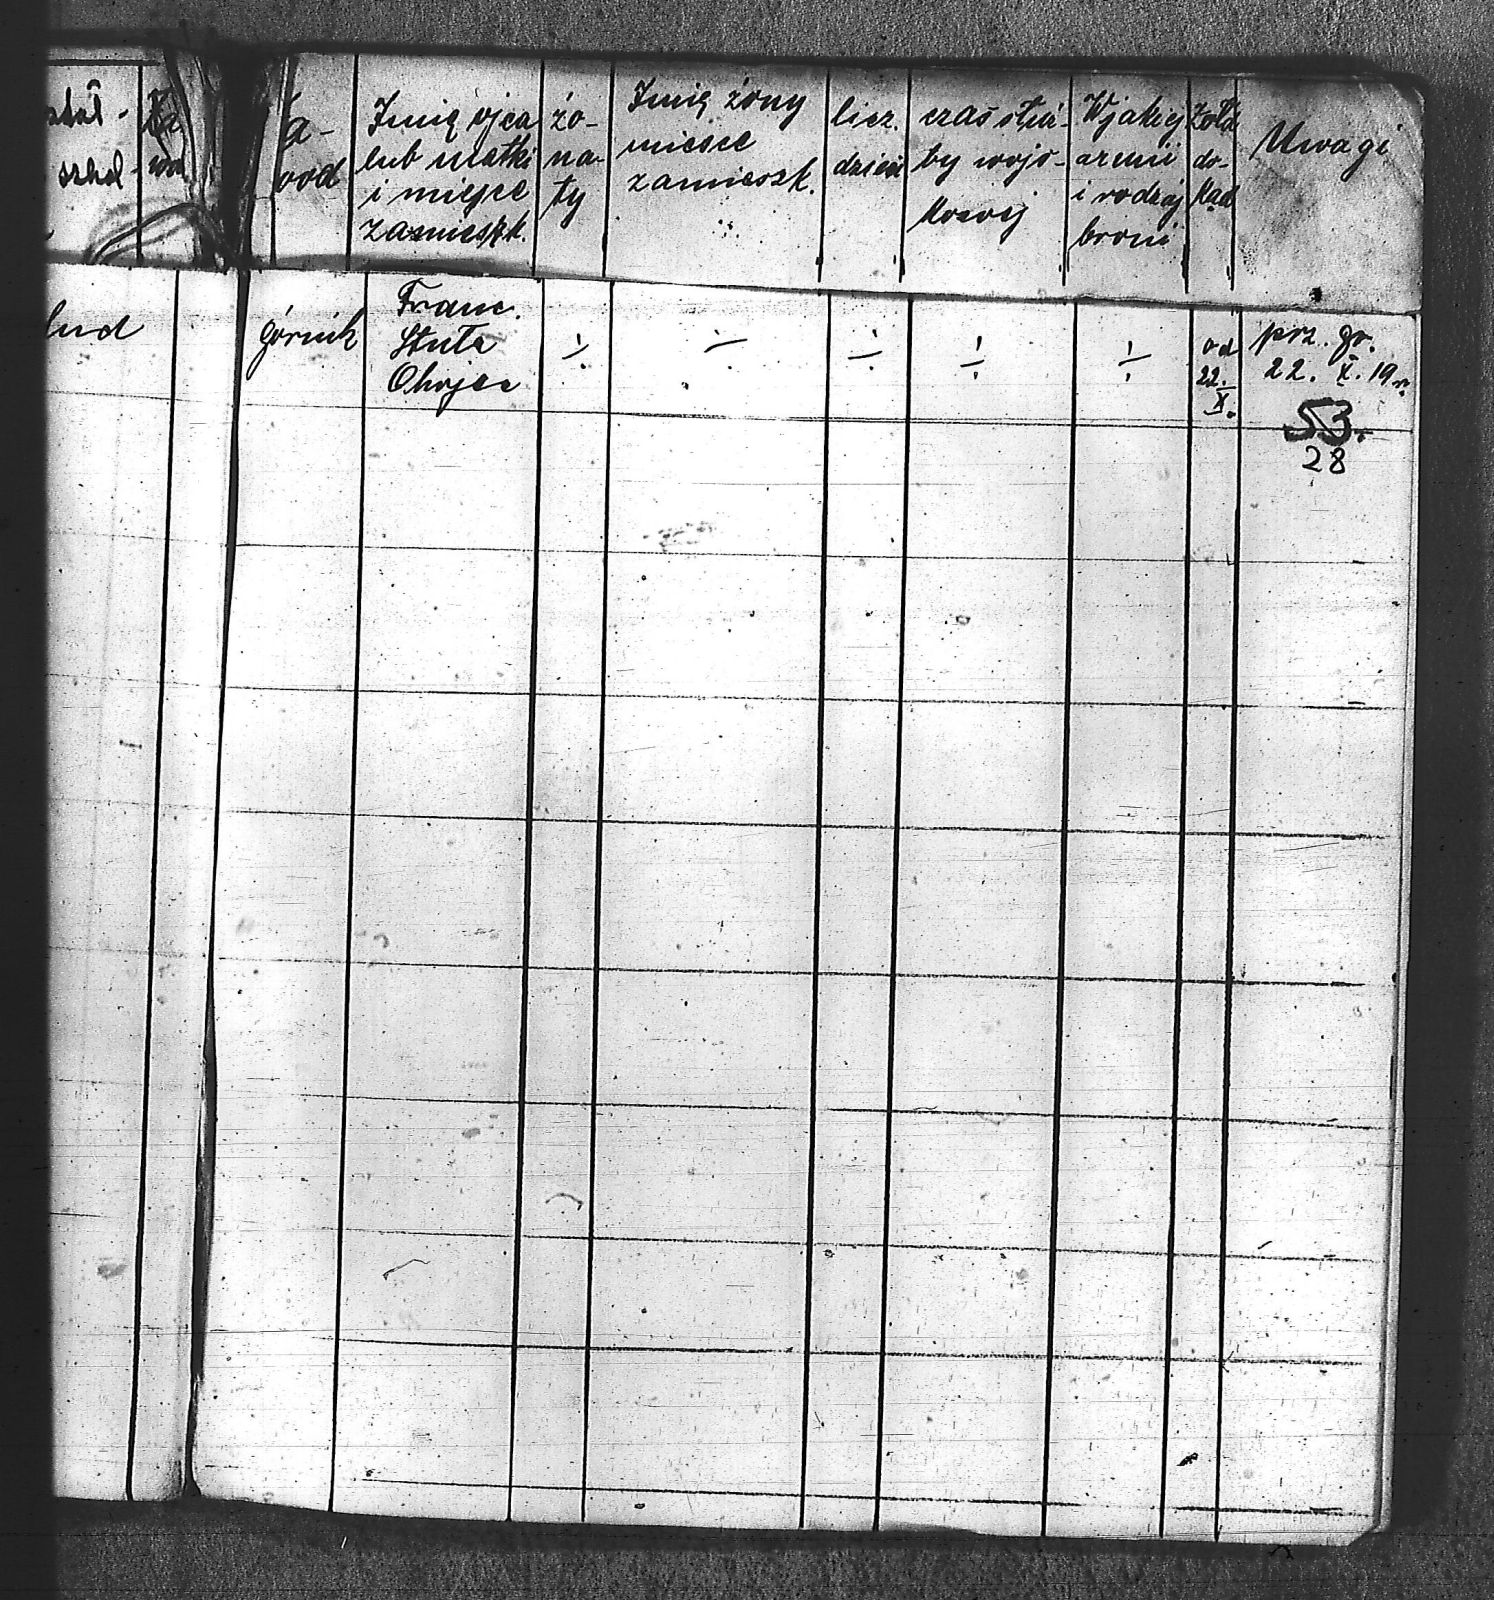 szkol-
Za
wód
a-
wod
Imię ojca
lub matki
i miejsce
zamieszk.
żo-
na-
ty
Imię żony
miesce
zamieszk.
licz.
dzieci
czas służ-
by wojs-
kowej
W jakiej
armii
i rodzaj
broni
Żołd
do-
kąd
Uwagi
lud
górnik
Franc.
Stuła
Chojec
÷
÷
÷
÷
÷
od
22.
X.
prz. gr.
22. X. 19 r.
53.
28